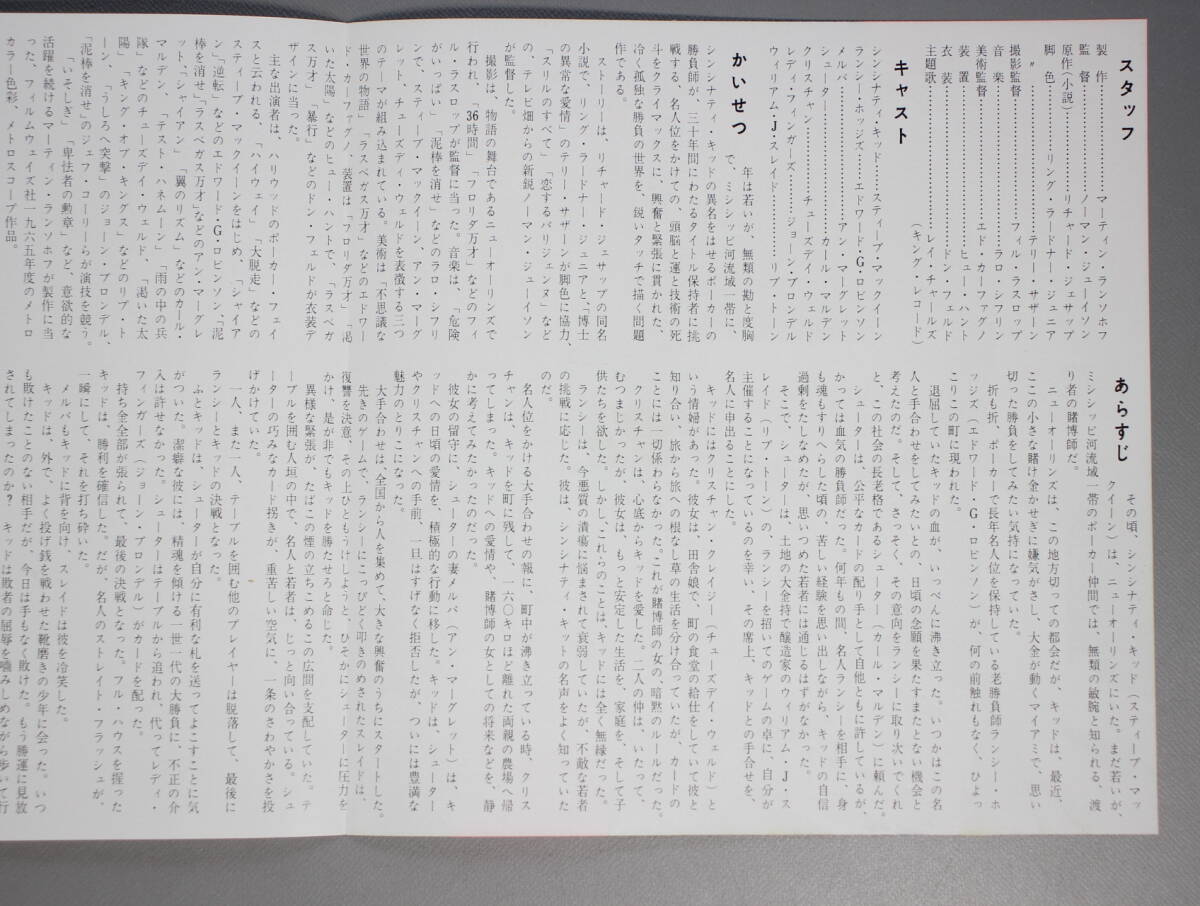 スタッフ
製作……………マーティン・ランソホフ
監督……………ノーマン・ジュイソン
原作(小説)……………リチャード・ジェサップ
脚色……………リング・ラードナー・ジュニア
〃……………テリー・サザーン
撮影監督……………フィル・ラスロップ
音楽……………ラロ・シフリン
美術監督……………エド・カーファグノ
装置……………ヒュー・ハント
衣装……………ドン・フェルド
主題歌……………レイ・チャールズ
(キング・レコード)
キャスト
シンシナティ・キッド……スティーブ・マックイーン
ランシー・ホッジズ……エドワード・G・ロビンソン
メルバ……………アン・マーグレット
シューター……………カール・マルデン
クリスチャン……………チューズデイ・ウェルド
レディ・フィンガーズ……………ジョーン・ブロンデル
ウィリアム・J・スレイド……………リプ・トーン
かいせつ
年は若いが、無類の勘と度胸
で、ミシシッピ河流域一帯に、
シンシナティ・キッドの異名をはせるポーカーの
勝負師が、三十年間にわたるタイトル保持者に挑
戦する、名人位をかけての、頭脳と運と技術の死
斗をクライマックスに、興奮と緊張に貫かれた、
冷く孤独な勝負の世界を、鋭いタッチで描く問題
作である。
ストーリーは、リチャード・ジェサップの同名
小説で、リング・ラードナー・ジュニアと、「博士
の異常な愛情」のテリー・サザーンが脚色に協力、
「スリルのすべて」「恋するパリジェンヌ」など
の、テレビ畑からの新鋭ノーマン・ジュイソン
が監督した。
撮影は、物語の舞台であるニューオーリンズで
行われ、「36時間」「フロリダ万才」などのフィ
ル・ラスロップが監督に当った。音楽は、「危険
がいっぱい」「泥棒を消せ」などのラロ・シフリ
ンで、スティーブ・マックイーン、アン・マーグ
レット、チューズデイ・ウェルドを表徴する三つ
のテーマが組み込まれている。美術は「不思議な
世界の物語」「ラスベガス万才」などのエドワー
ド・カーファグノ、装置は「フロリダ万才」、「渇
いた太陽」などのヒュー・ハントで、「ラスベガ
ス万才」「暴行」などのドン・フェルドが衣装デ
ザインに当った。
主な出演者は、ハリウッドのポーカー・フェイ
スと云われる、「ハイウェイ」「大脱走」などの
スティーブ・マックイーンをはじめ、「シャイア
ン」「逆転」などのエドワード・G・ロビンソン、「泥
棒を消せ」「ラスベガス万才」などのアン・マーグレ
ット、「シャイアン」「翼のリズム」などのカール・
マルデン、「テスト・ハネムーン」、「雨の中の兵
隊」などのチューズデイ・ウェルド、「渇いた太
陽」「キング・オブ・キングス」などのリプ・ト
ーン、「うしろへ突撃」のジョーン・ブロンデル、
「泥棒を消せ」のジェフ・コーリーらが演技を競う。
「いそしぎ」「卑怯者の勲章」など、意欲的な
活躍を続けるマーティン・ランソホフが製作に当
った、フィルムウェイズ社一九六五年度のメトロ
カラー色彩、メトロスコープ作品。
あらすじ
その頃、シンシナティ・キッド(スティーブ・マッ
クイーン)は、ニューオーリンズにいた。まだ若いが、
ミシシッピ河流域一帯のポーカー仲間では、無類の敏腕と知られる、渡
り者の賭博師だ。
ニューオーリンズは、この地方切っての都会だが、キッドは、最近、
ここの小さな賭け金かせぎに嫌気がさし、大金が動くマイアミで、思い
切った勝負をしてみたい気持になっていた。
折も折、ポーカーで長年名人位を保持している老勝負師ランシー・ホ
ッジズ(エドワード・G・ロビンソン)が、何の前触れもなく、ひょっ
こりこの町に現われた。
退屈していたキッドの血が、いっぺんに沸き立った。いつかはこの名
人と手合わせをしてみたいとの、日頃の念願を果たすまたとない機会と
考えたのだ。そして、さっそく、その意向をランシーに取り次いでくれ
と、この社会の長老格であるシューター(カール・マルデン)に頼んだ。
シューターは、公平なカードの配り手として自他ともに許しているが、
かっては血気の勝負師だった。何年もの間、名人ランシーを相手に、身
も魂もすりへらした頃の、苦しい経験を思い出しながら、キッドの自信
過剰をたしなめたが、思いつめた若者には通じるはずがなかった。
そこで、シューターは、土地の大金持で醸造家のウィリアム・J・ス
レイド(リプ・トーン)の、ランシーを招いてのゲームの卓に、自分が
主催することになっているのを幸い、その席上、キッドとの手合せを、
名人に申出ることにした。
キッドにはクリスチャン・クレイジー(チューズデイ・ウェルド)と
いう情婦があった。彼女は、田舎娘で、町の食堂の給仕をしていて彼と
知り合い、旅から旅への根なし草の生活を分け合っていたが、カードの
ことには一切係わらなかった。これが賭博師の女の、暗黙のルールだった。
クリスチャンは、心底からキッドを愛した。二人の仲は、いたって、
むつましかったが、彼女は、もっと安定した生活を、家庭を、そして子
供たちを欲した。しかし、これらのことは、キッドには全く無縁だった。
ランシーは、今悪質の潰瘍に悩まされて衰弱していたが、不敵な若者
の挑戦に応じた。彼は、シンシナティ・キットの名声をよく知っていた
のだ。
名人位をかける大手合わせの報に、町中が沸き立っている時、クリス
チャンは、キッドを町に残して、一六〇キロほど離れた両親の農場へ帰
ってしまった。キッドへの愛情や、賭博師の女としての将来などを、静
かに考えてみたかったのだ。
彼女の留守に、シューターの妻メルバ(アン・マーグレット)は、キ
ッドへの日頃の愛情を、積極的な行動に移した。キッドは、シューター
やクリスチャンへの手前、一旦はすげなく拒否したが、ついには豊満な
魅力のとりこになった。
大手合わせは、全国から人を集めて、大きな興奮のうちにスタートした。
先きのゲームで、ランシーにこっぴどく叩きのめされたスレイドは、
復讐を決意、その上ひともうけしようと、ひそかにシューターに圧力を
かけ、是が非でもキッドを勝たせろと命じた。
異様な緊張が、たばこの煙の立ちこめるこの広間を支配していた。テ
ーブルを囲む人垣の中で、名人と若者は、じっと向い合っている。シュ
ーターの巧みなカード捌きが、重苦しい空気に、一条のさわやかさを投
げかけていた。
一人、また一人、テーブルを囲む他のプレイヤーは脱落して、最後に
ランシーとキッドの決戦となった。
ふとキッドは、シューターが自分に有利な札を送ってよこすことに気
がついた。潔癖な彼には、精魂を傾ける一世一代の大勝負に、不正の介
入は許せなかった。シューターはテーブルから追われ、代ってレディ・
フィンガーズ(ジョーン・ブロンデル)がカードを配った。
持ち金全部が張られて、最後の決戦となった。フル・ハウスを握った
キッドは、勝利を確信した。だが、名人のストレイト・フラッシュが、
一瞬にして、それを打ち砕いた。
メルバもキッドに背を向け、スレイドは彼を冷笑した。
キッドは、外で、よく投げ銭を戦わせた靴磨きの少年に会った。いつ
も敗けたことのない相手だが、今日は手もなく敗けた。もう勝運に見放
されてしまったのか? キッドは敗者の屈辱を噛みしめながら歩いて行